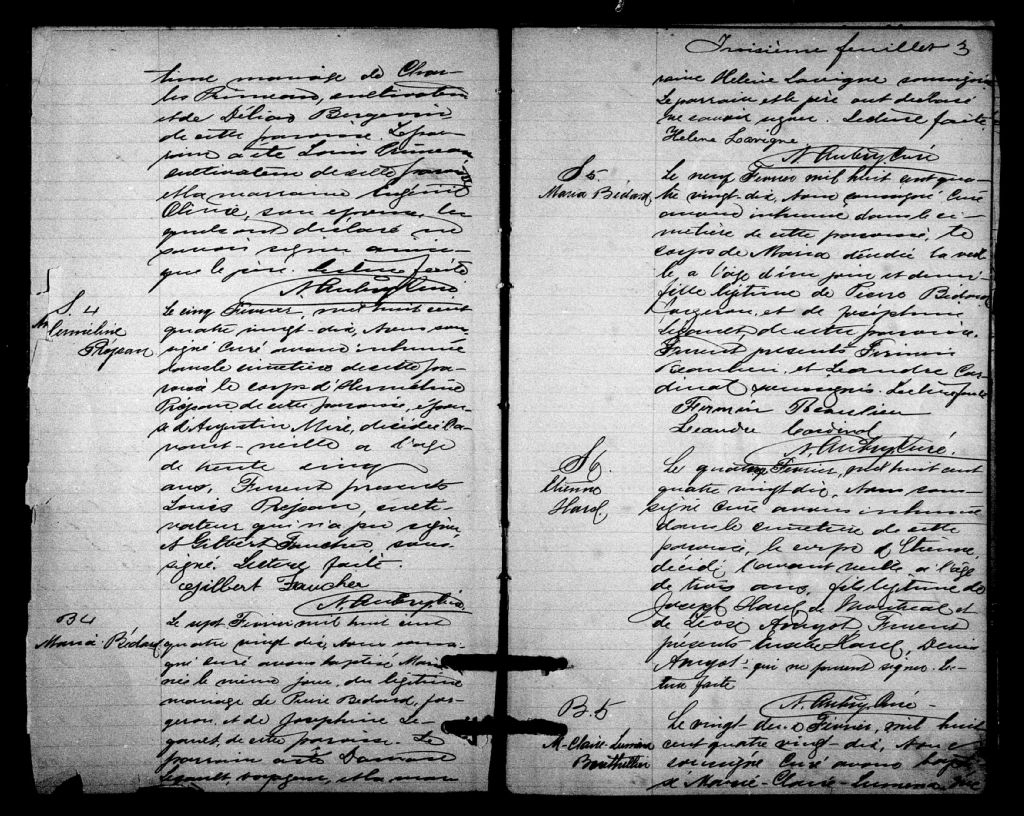 time mariage de Char-
les Primeau, cultivateur
et de Délias Bergevin
de cette paroisse. Le par-
rain a été Louis Primeau,
cultivateur de cette paroisse
et la marraine
son épouse, les
quels ont déclaré ne
savoir signer ainsi
que le père. Lecture faite
N. Aubry Curé
S. 4
Herméline
Réjean
Le cinq Février, mil huit cent
quatre vingt-dix, Nous sous-
signé Curé avons inhumé
dans le cimetière de cette pa-
roisse le corps d'Herméline
Réjean de cette paroisse, épou-
se d'Augustin décédée l'a-
vant-veille a l'age
de trente cinq
ans. Furent presents
Louis Réjean, culti-
vateur qui n'a pu signer
et Gilbert Faucher, sous-
signé. Lecture faite.
Gilbert Faucher
N. Aubry Curé
B 4
Maria Bédard
Le sept Février mil huit cent
quatre vingt dix, Nous soussi-
gné curé avons baptisé Maria
née le même jour, du légitime
mariage de Pierre Bedard, for-
geron, et de Josephine Le-
gault, de cette paroisse. Le
parrain a été Damase
Legault, et la mar-
Troisième feuillet 3
raine Hélène Lavigne soussignée
Le parrain et le père ont declaré
ne savoir signer. Lecture faite.
Hélène Lavigne
N. Aubry Curé
S 5
Maria Bédard
Le neuf Février mil huit cent qua-
tre vingt-dix, Nous soussigné Curé
avons inhumé dans le ci-
metière de cette paroisse, le
corps de Maria décédée la veil-
le, a l'age d'un jour et demi
fille légitime de Pierre Bédard
forgeron, et de Joséphine
Legault de cette paroisse.
Furent presents Firmin
Beaulieu, et Léandre Car-
dinal soussignés. Lecture faite
Firmin Beaulieu
Leandre Cardinal
N. Aubry Curé.
S 6.
Etienne
Harel
Le Février, mil huit cent
quatre vingt dix, Nous sous-
signé Curé avons inhumé
dans le cimetière de cette
paroisse, le corps d'Etienne,
décédé l'avant veille a l'âge
de trois ans, fils légitime de
Joseph Harel de Montreal et
de Amyot. Furent
présents Harel, Denis
Amyot qui ne purent signer. Lec-
ture faite
N. Aubry Curé.
B. 5
M-Claire-
Bouthillier
Le vingt-deux Février, mil huit
cent quatre vingt-dix, Nous
soussigné Curé avons baptisé
Marie-Claire-